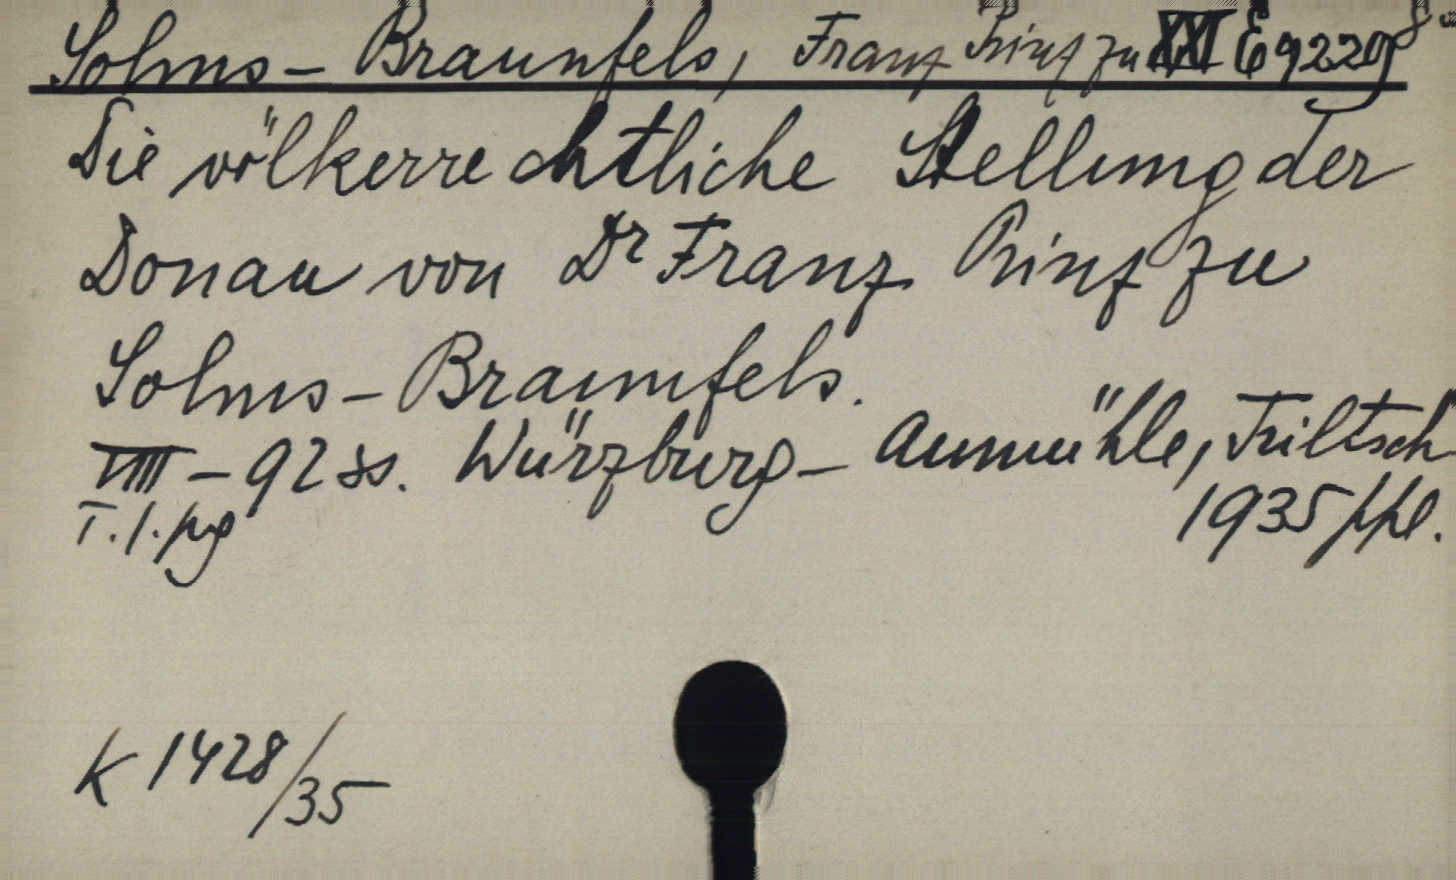 Solms-Braunfels, Franz Prinz zu XXI E 9229
Die völkerrechtliche Stellung der
Donau von Dr Franz Prinz zu
Solms-Braunfels.
VIII-92 ss. Würzburg-Aumühle, Triltsch
T. l. pg 1935 ppl.
K 1428/35